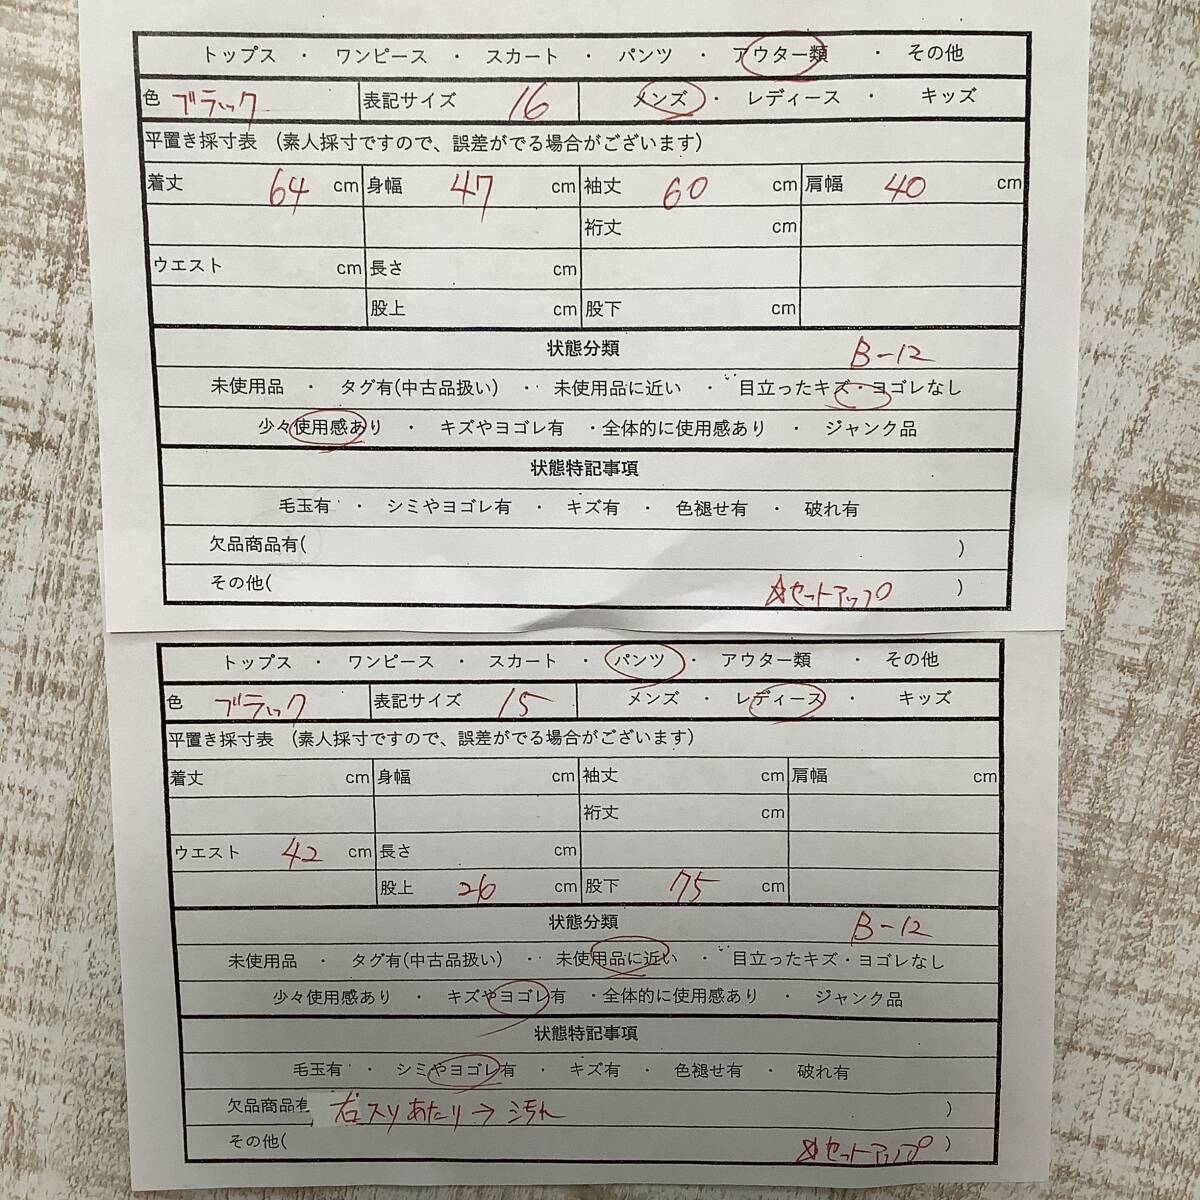 トップス ・ ワンピース ・ スカート ・ パンツ ・ アウター類 ・ その他
色 ブラック 表記サイズ 16 メンズ ・ レディース ・ キッズ
平置き採寸表 (素人採寸ですので、誤差がでる場合がございます)
着丈 64 cm 身幅 47 cm 袖丈 60 cm 肩幅 40 cm
裄丈 cm
ウエスト cm 長さ cm
股上 cm 股下 cm
状態分類 B-12
未使用品 ・ タグ有(中古品扱い) ・ 未使用品に近い ・ 目立ったキズ・ヨゴレなし
少々使用感あり ・ キズやヨゴレ有 ・全体的に使用感あり ・ ジャンク品
状態特記事項
毛玉有 ・ シミやヨゴレ有 ・ キズ有 ・ 色褪せ有 ・ 破れ有
欠品商品有( )
その他( ☆セットアップ )
トップス ・ ワンピース ・ スカート ・ パンツ ・ アウター類 ・ その他
色 ブラック 表記サイズ 15 メンズ ・ レディース ・ キッズ
平置き採寸表 (素人採寸ですので、誤差がでる場合がございます)
着丈 cm 身幅 cm 袖丈 cm 肩幅 cm
裄丈 cm
ウエスト 42 cm 長さ cm
股上 26 cm 股下 75 cm
状態分類 B-12
未使用品 ・ タグ有(中古品扱い) ・ 未使用品に近い ・ 目立ったキズ・ヨゴレなし
少々使用感あり ・ キズやヨゴレ有 ・全体的に使用感あり ・ ジャンク品
状態特記事項
毛玉有 ・ シミやヨゴレ有 ・ キズ有 ・ 色褪せ有 ・ 破れ有
欠品商品有 右スリあたり→汚れ )
その他( ☆セットアップ )